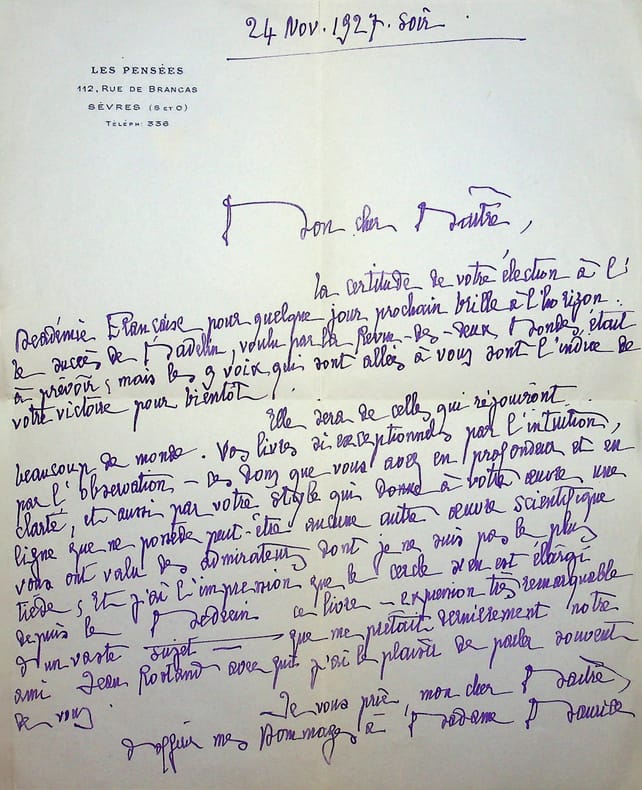 24 Nov. 1927. Soir.
LES PENSÉES
112, RUE DE BRANCAS
SÈVRES (S ET O)
TÉLÉPH: 336
Mon cher Maître,
La certitude de votre élection à l'
Académie Française pour quelque jour prochain brille à l'horizon.
Le succès de Madelin, voulu par la Revue-des-deux Mondes, était
à prévoir; mais les 9 voix qui sont allées à vous sont l'indice de
votre victoire pour bientôt!
Elle sera de celles qui réjouiront
beaucoup de monde. Vos livres si exceptionnels par l'intuition,
par l'observation - ces dons que vous avez en profondeur et en
clarté, et aussi par votre style qui donne à votre œuvre une
ligne que ne possède peut-être aucune autre œuvre scientifique
vous ont valu des admirateurs dont je ne suis pas le plus
tiède; Et j'ai l'impression que le cercle s'en est élargi
depuis le Médecin ce livre - expression très remarquable
d'un vaste sujet - que me prêtait dernièrement notre
ami Jean Rostand avec qui j'ai le plaisir de parler souvent
de vous.
Je vous prie, mon cher Maître,
d'offrir mes hommages à Madame Maurice